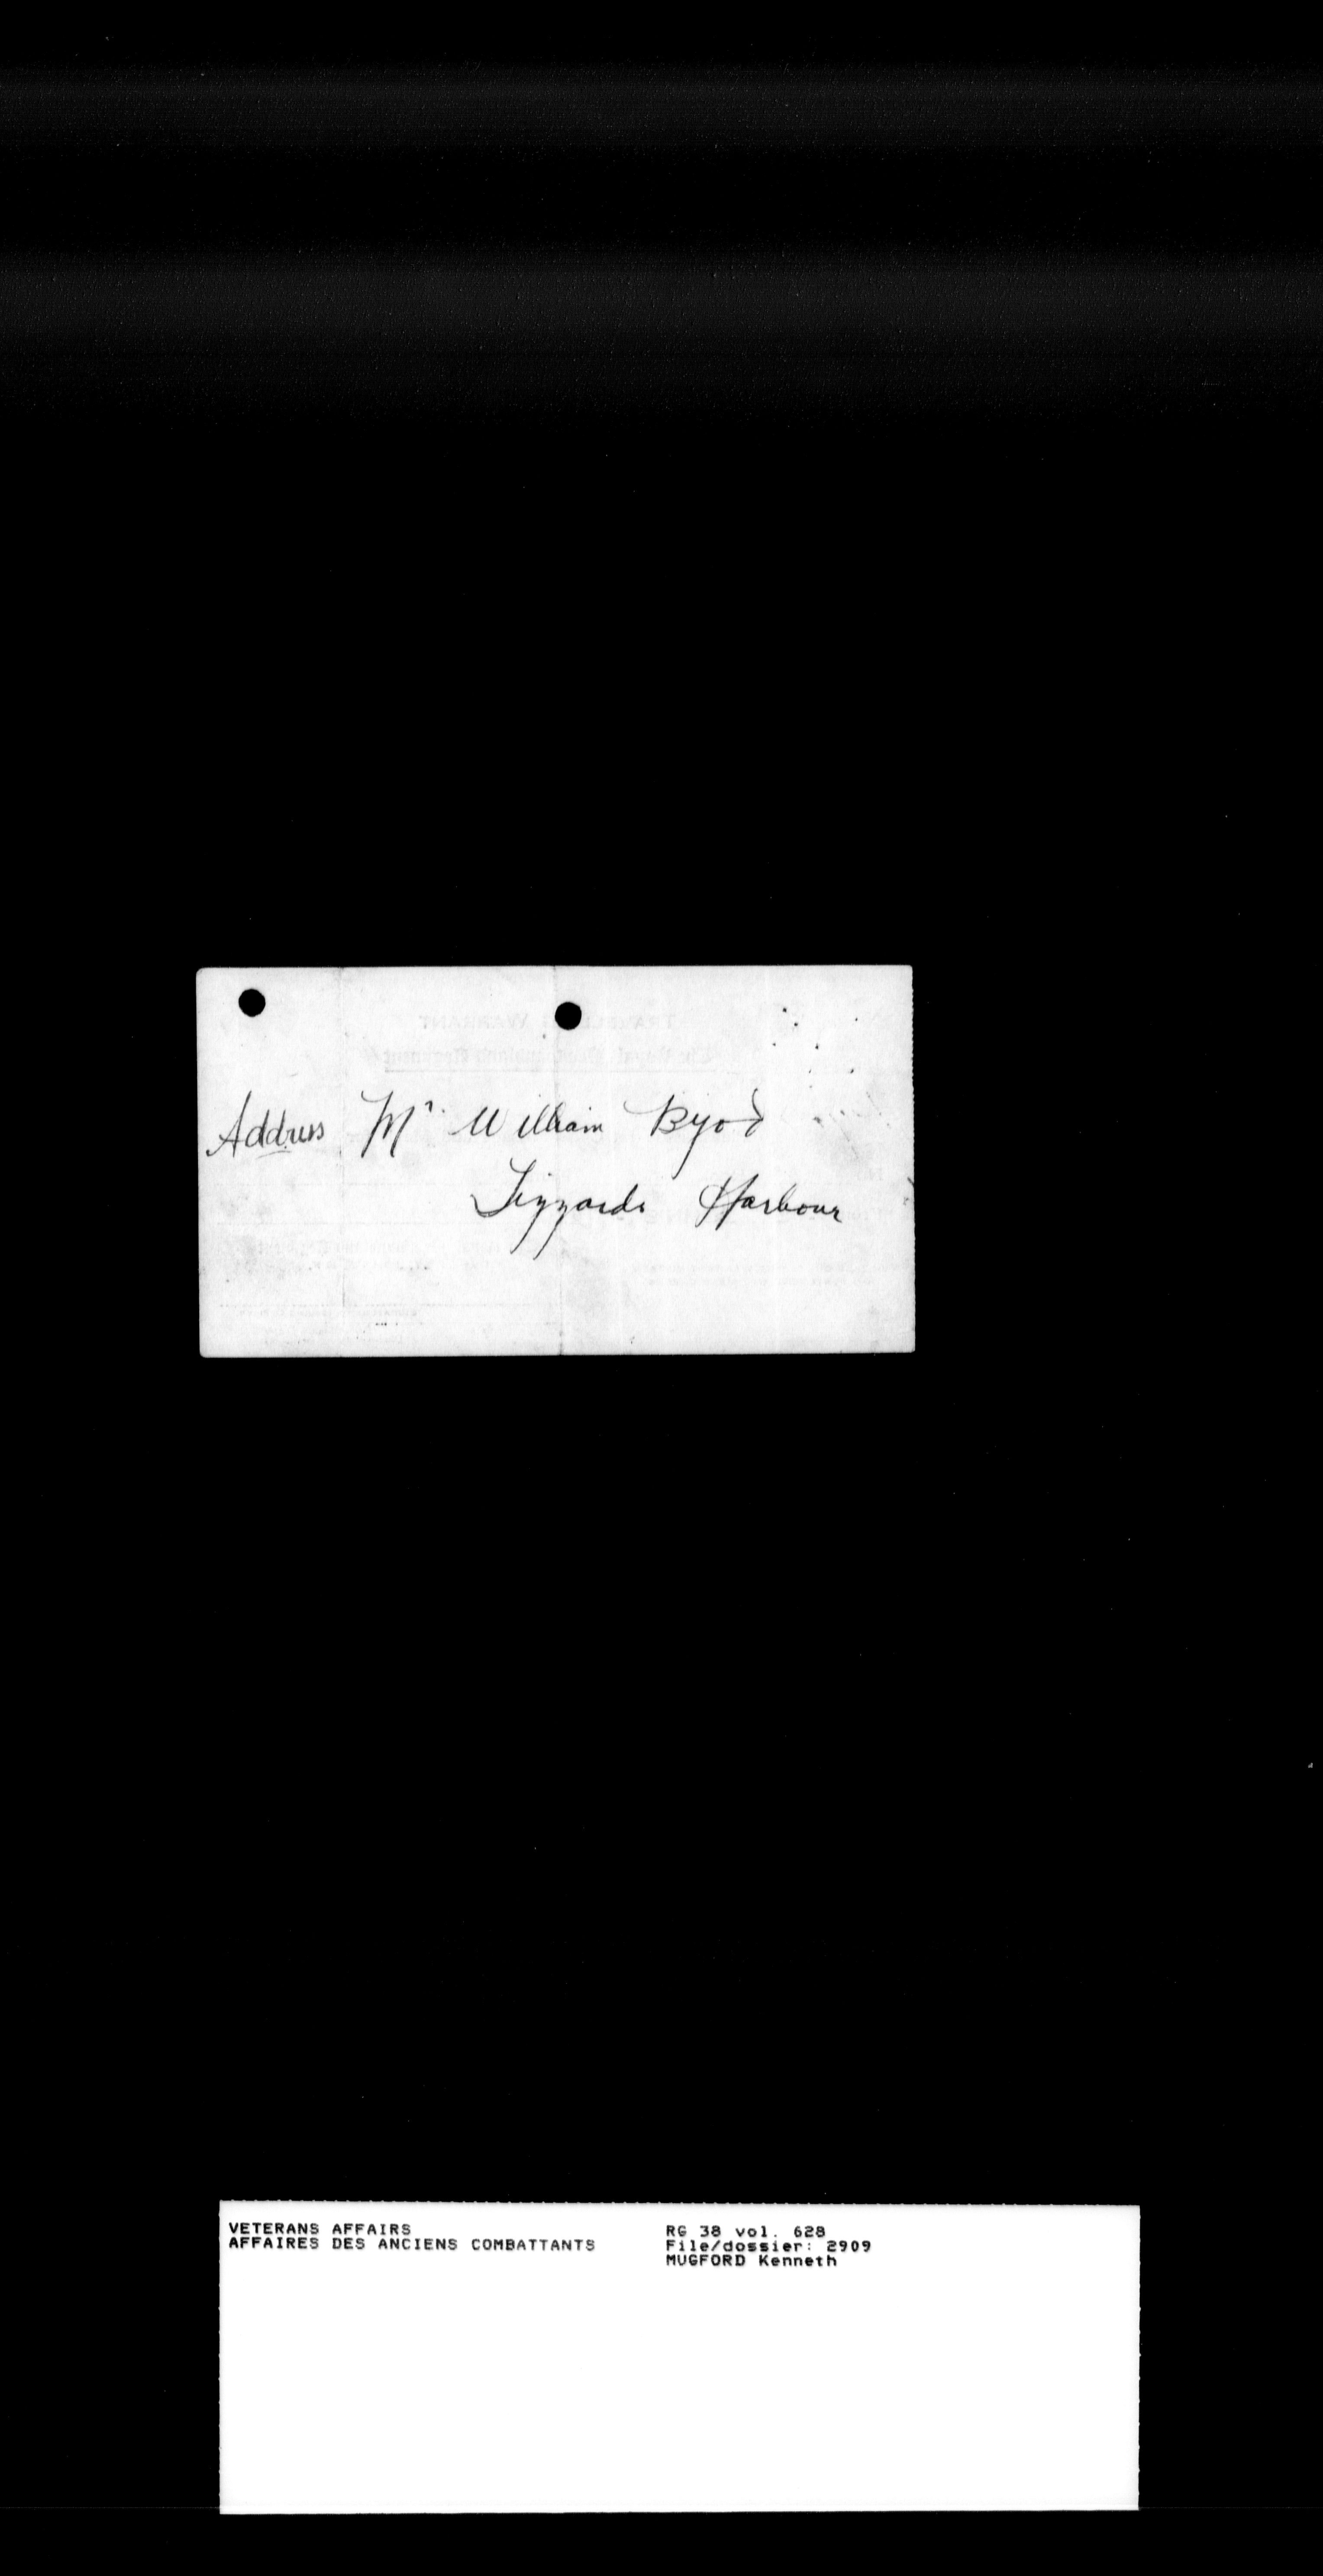 Address Mr. William Byod
Tizzards Harbour
VETERANS AFFAIRS
AFFAIRES DES ANCIENS COMBATTANTS
RG 38 vol. 628
File/dossier: 2909
MUGFORD Kenneth